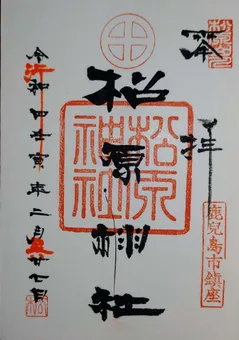 奉拝
松原神社
松原神社
鹿児島市鎮座
令和四年壬寅年二月廿七日